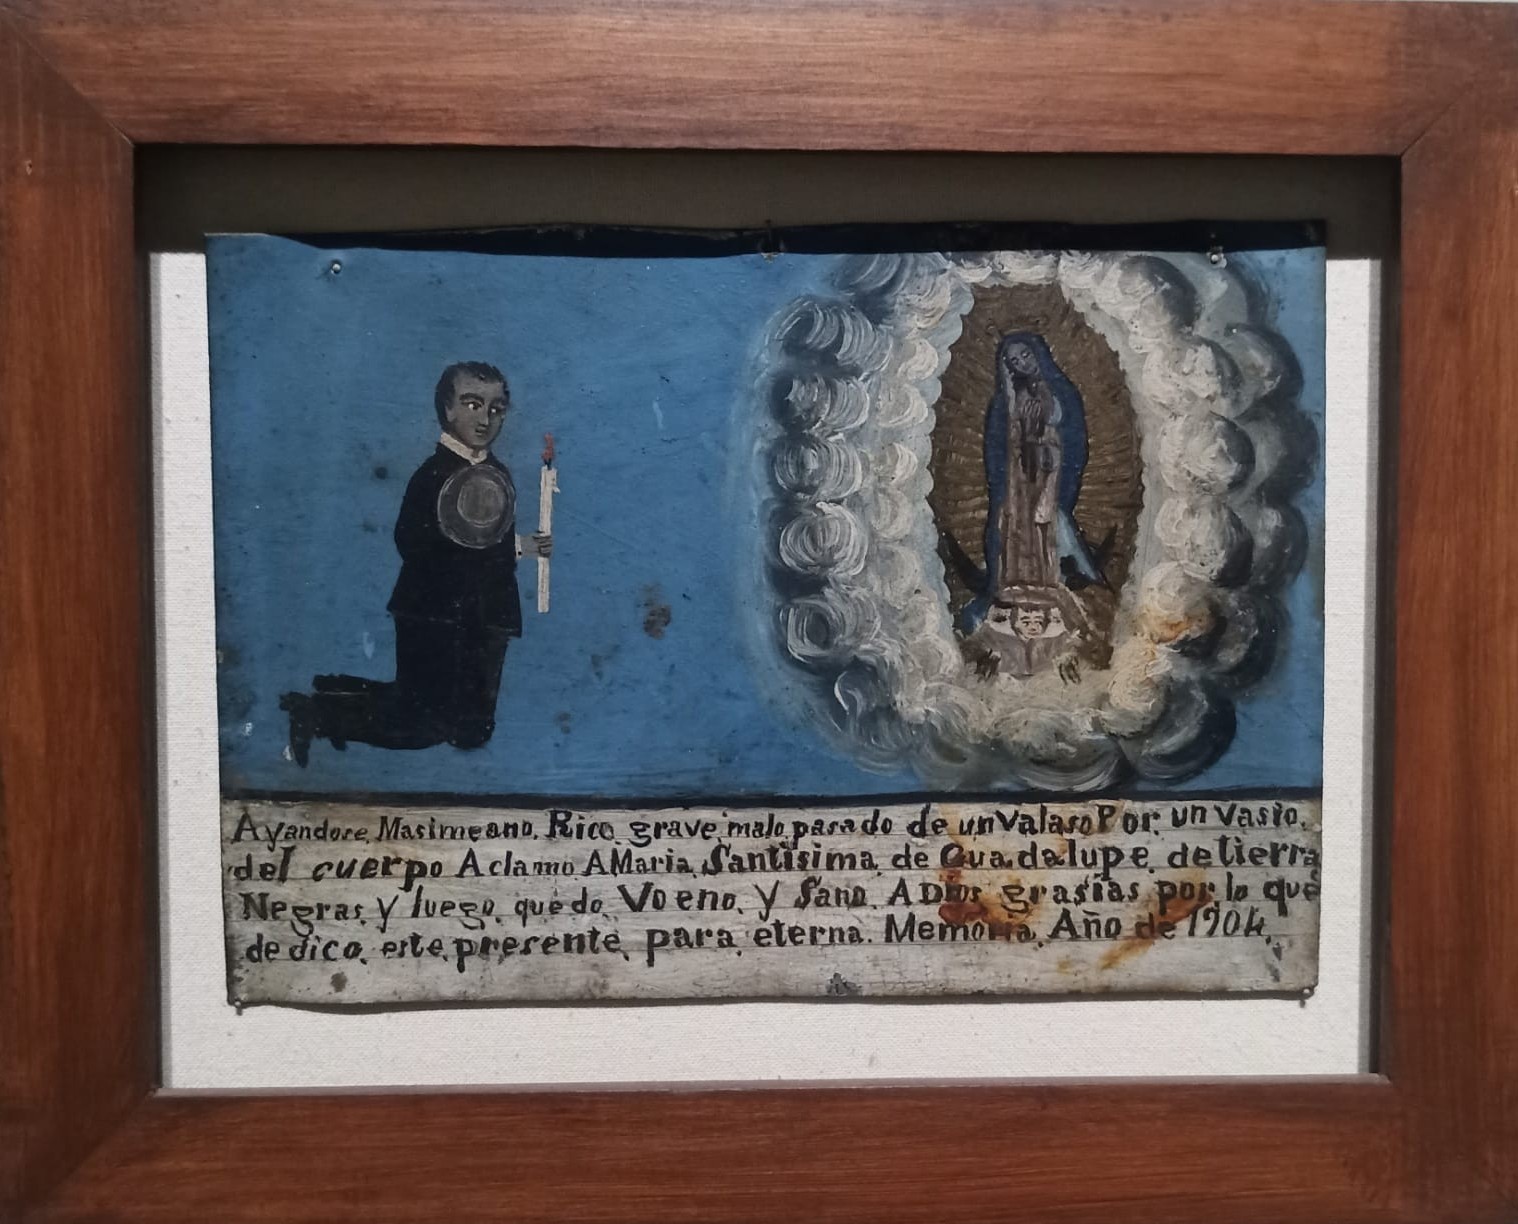 Ayandose. Masimeano. Rico. grave, malo, pasado de un valaso Por. un vasio.
del cuerpo Aclamo AMaria, Santisima, de Guadalupe, de tierra
Negras, y luego, quedo, Voeno, y Sano, A Dios grasias por, lo que
dedico, este, presente, para eterna. Memoria, Año de 1904.